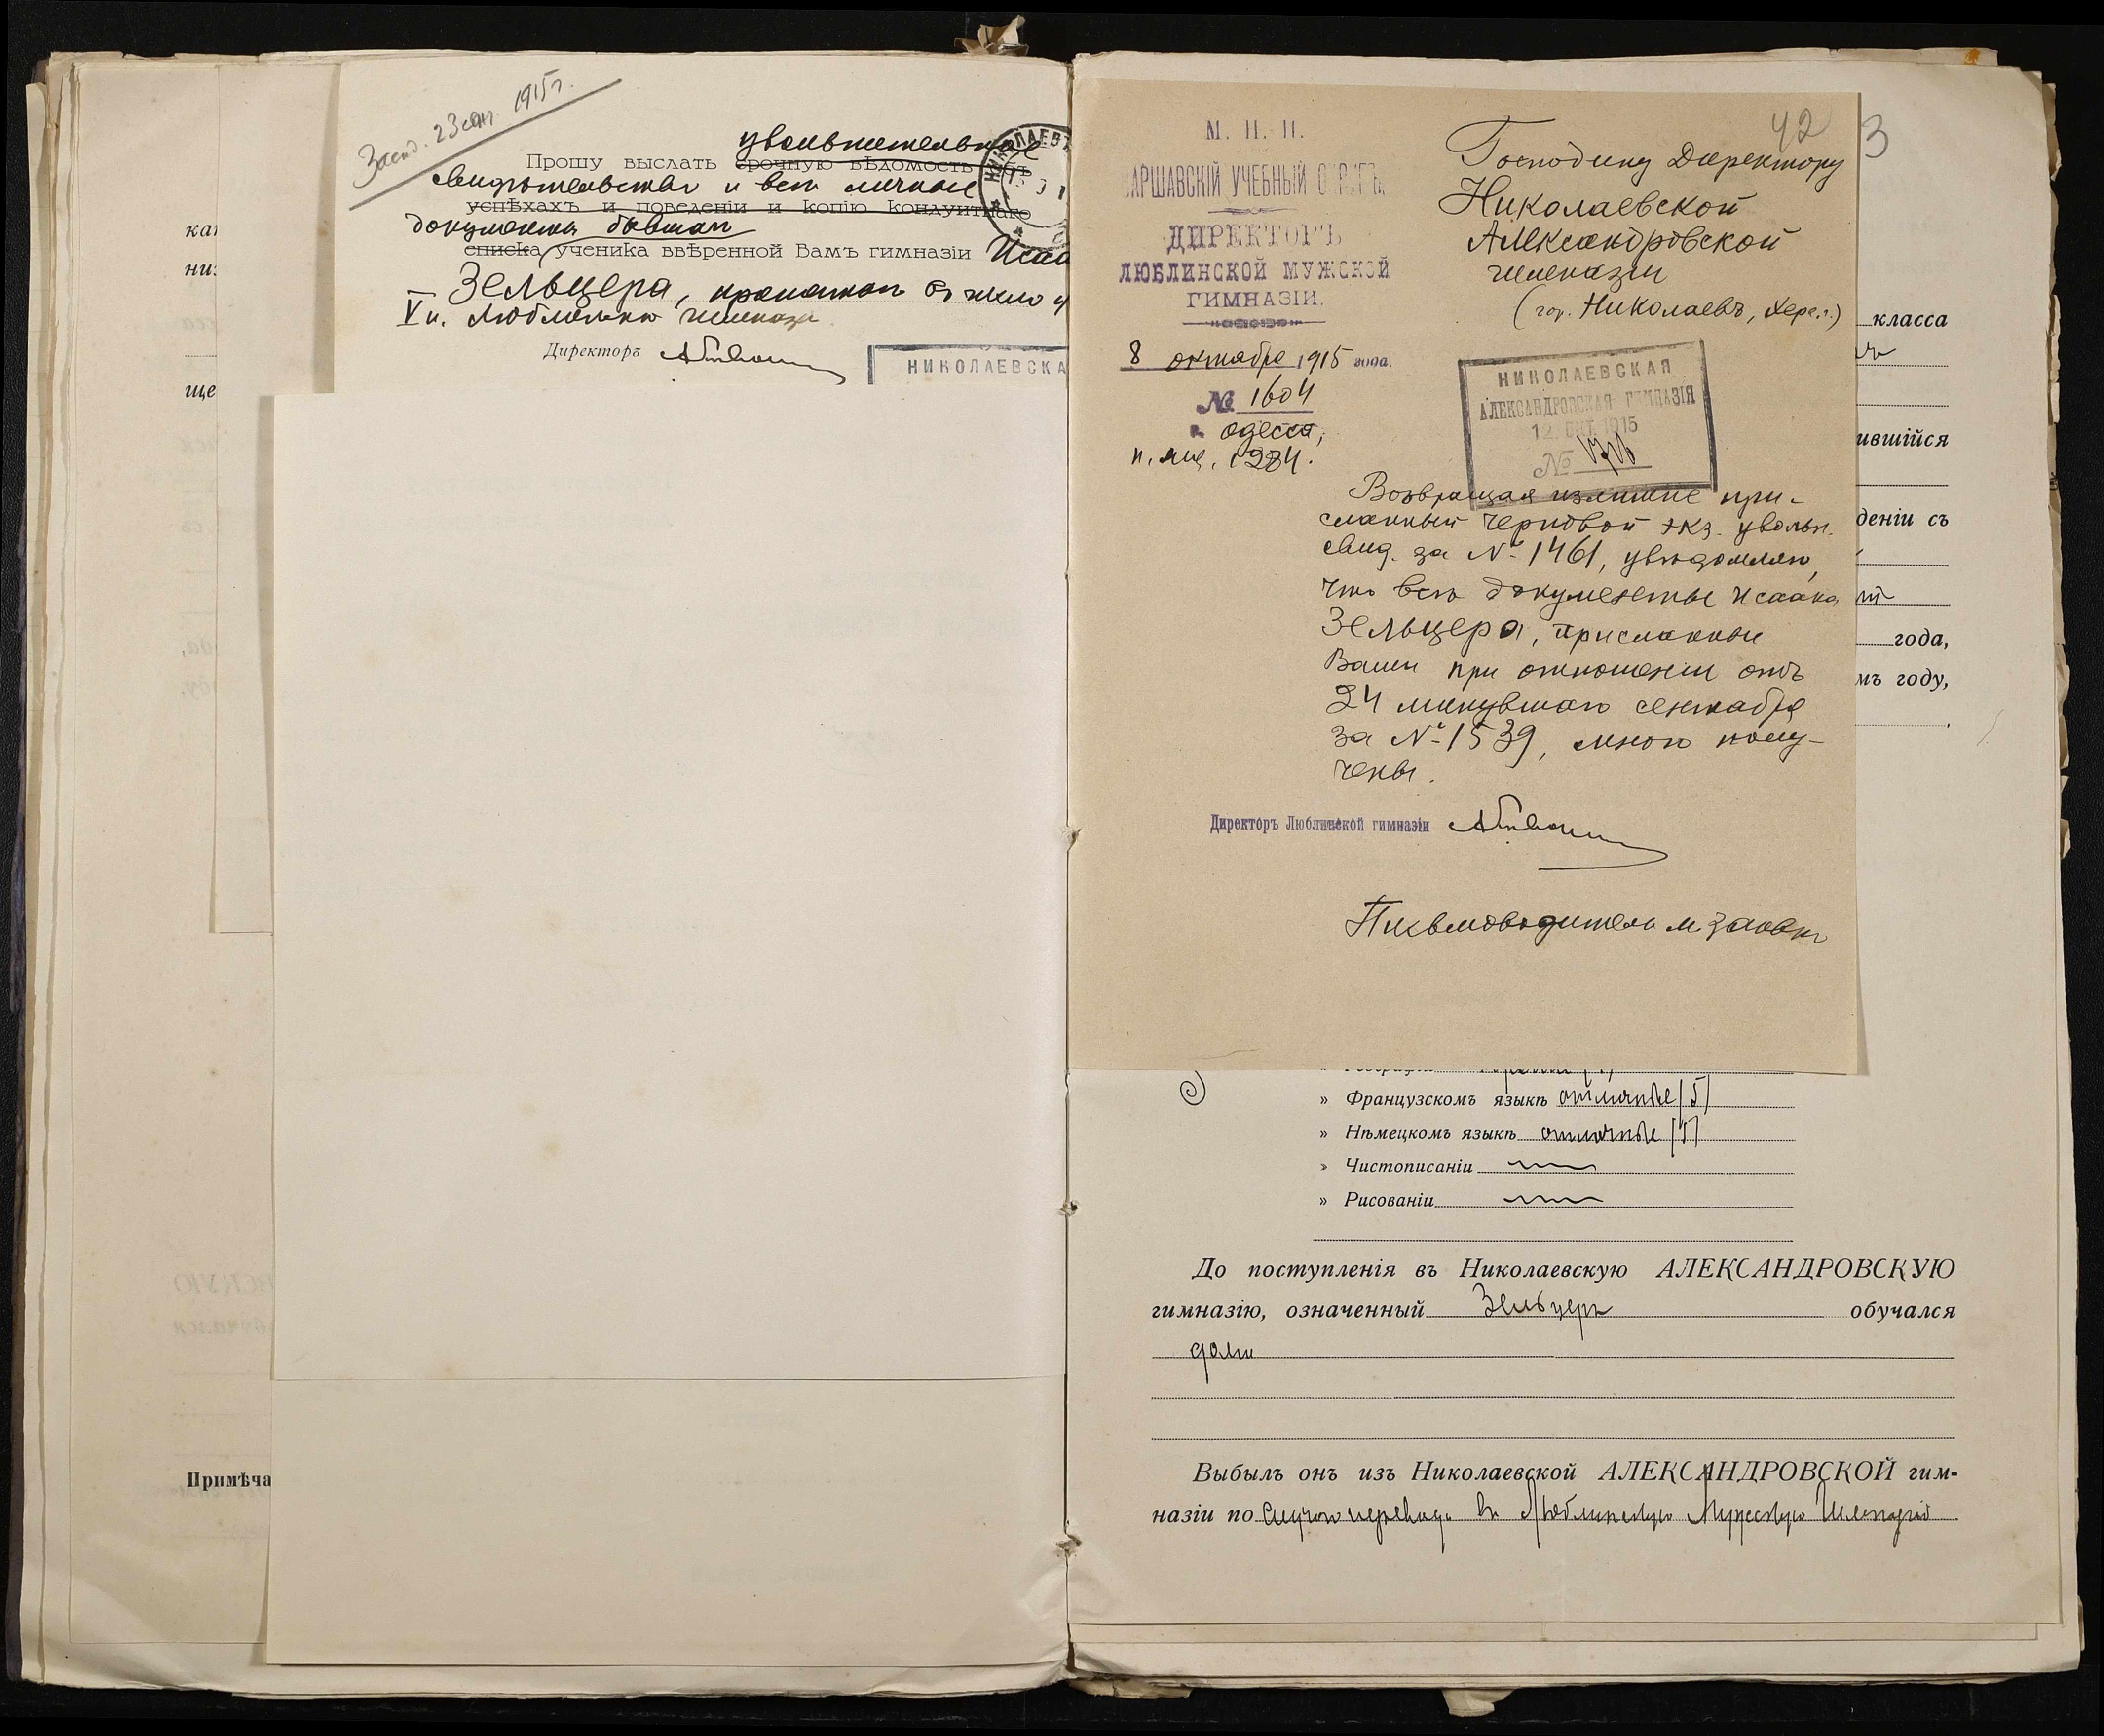 Засѣд. 23 сент 1915 г.
увольнительное
Прошу выслать срочную вѣдомость объ
свидѣтельство и всѣ личные
успѣхахъ и поведеніи и копію кондуитнаго
документы бывшаго
списка ученика ввѣренной Вамъ гимназіи Исаа
Зельцера, принятаго въ число у
V к. Люблинской гимназіи
Директоръ
НИКОЛАЕВСКА
НИКОЛАЕВЪ
ка
ни
ще
Примѣча
42
3
М. Н. П.
ВАРШАВСКІЙ УЧЕБНЫЙ ОКРУГЪ.
ДИРЕКТОРЪ
ЛЮБЛИНСКОЙ МУЖСКОЙ
ГИМНАЗІИ.
8 октября 1915 года.
№ 1604
г. Одесса,
п. ящ. 1284.
Господину Директору
Николаевской
Александровской
гимназіи
(гор. Николаевъ, Херс. г.)
НИКОЛАЕВСКАЯ
АЛЕКСАНДРОВСКАЯ ГИМНАЗІЯ
12 ОКТ. 1915
№
Возвращая излишне при-
сланный черновой экз. увольн.
свид. за № 1461, увѣдомляю,
что всѣ документы Исаака
Зельцера, присланные
Вами при отношеніи отъ
24 минувшаго сентября
за № 1539, мною полу-
чены.
Директоръ Люблинской гимназіи
Письмоводитель
класса
ившійся
деніи съ
года,
мъ году,
» Французскомъ языкѣ отличные (5)
» Нѣмецкомъ языкѣ отличные (5)
» Чистописаніи
» Рисованіи
До поступленія въ Николаевскую АЛЕКСАНДРОВСКУЮ
гимназію, означенный Зельцеръ обучался
дома
Выбылъ онъ изъ Николаевской АЛЕКСАНДРОВСКОЙ гим-
назіи по случаю перевода въ Люблинскую Мужскую Гимназію